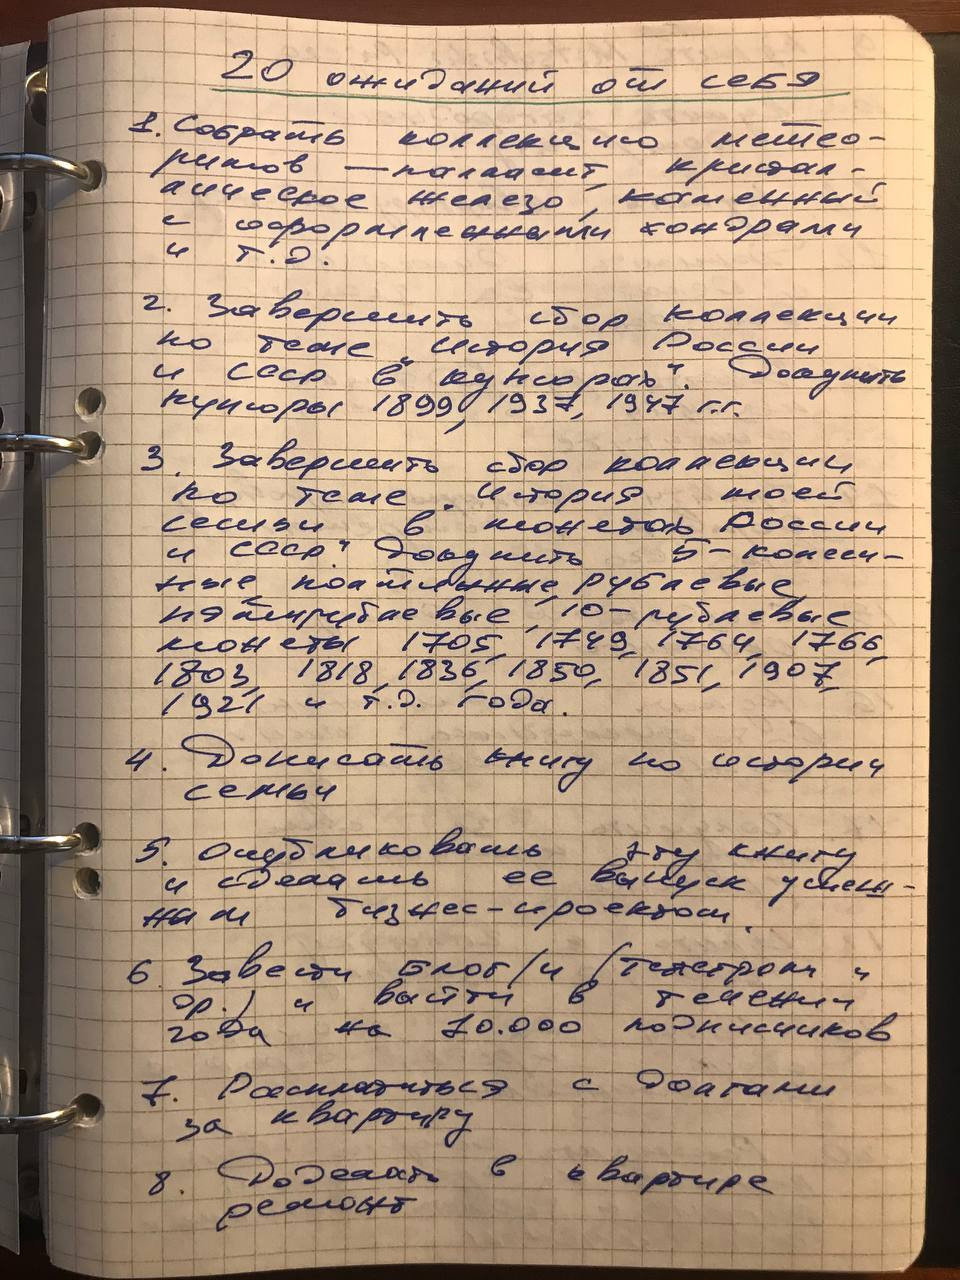 20 ожиданий от себя
1. Собрать коллекцию метео-
ритов — палласит, кристал-
лическое железо, каменный
с оформленными хондрами
и т.д.
2. Завершить сбор коллекции
по теме „История России
и СССР в купюрах“. Докупить
купюры 1899, 1937, 1947 г.г.
3. Завершить сбор коллекции
по теме „История моей
семьи в монетах России
и СССР“. Докупить 5-копееч-
ные, полтинные, рублевые,
пятирублевые, 10-рублевые
монеты 1705, 1749, 1764, 1766,
1803, 1818, 1836, 1850, 1851, 1907,
1921 и т.д. года.
4. Дописать книгу по истории
семьи
5. Опубликовать эту книгу
и сделать ее выпуск успеш-
ным бизнес-проектом.
6 Завести блог/и (телеграм и
др.) и выйти в течении
года на 10.000 подписчиков
7. Расплатиться с долгами
за квартиру
8. Доделать в квартире
ремонт